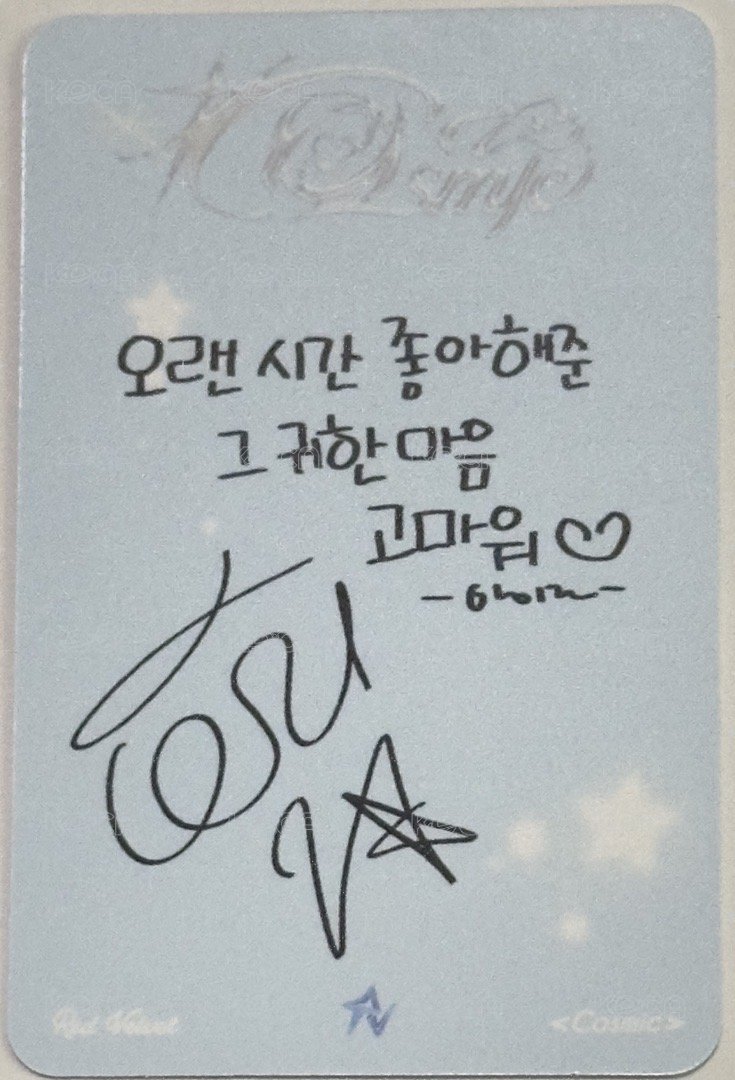 Cosmic
오랜 시간 좋아해준
그 귀한 마음
고마워♡
-아이린-
Red Velvet
<Cosmic>